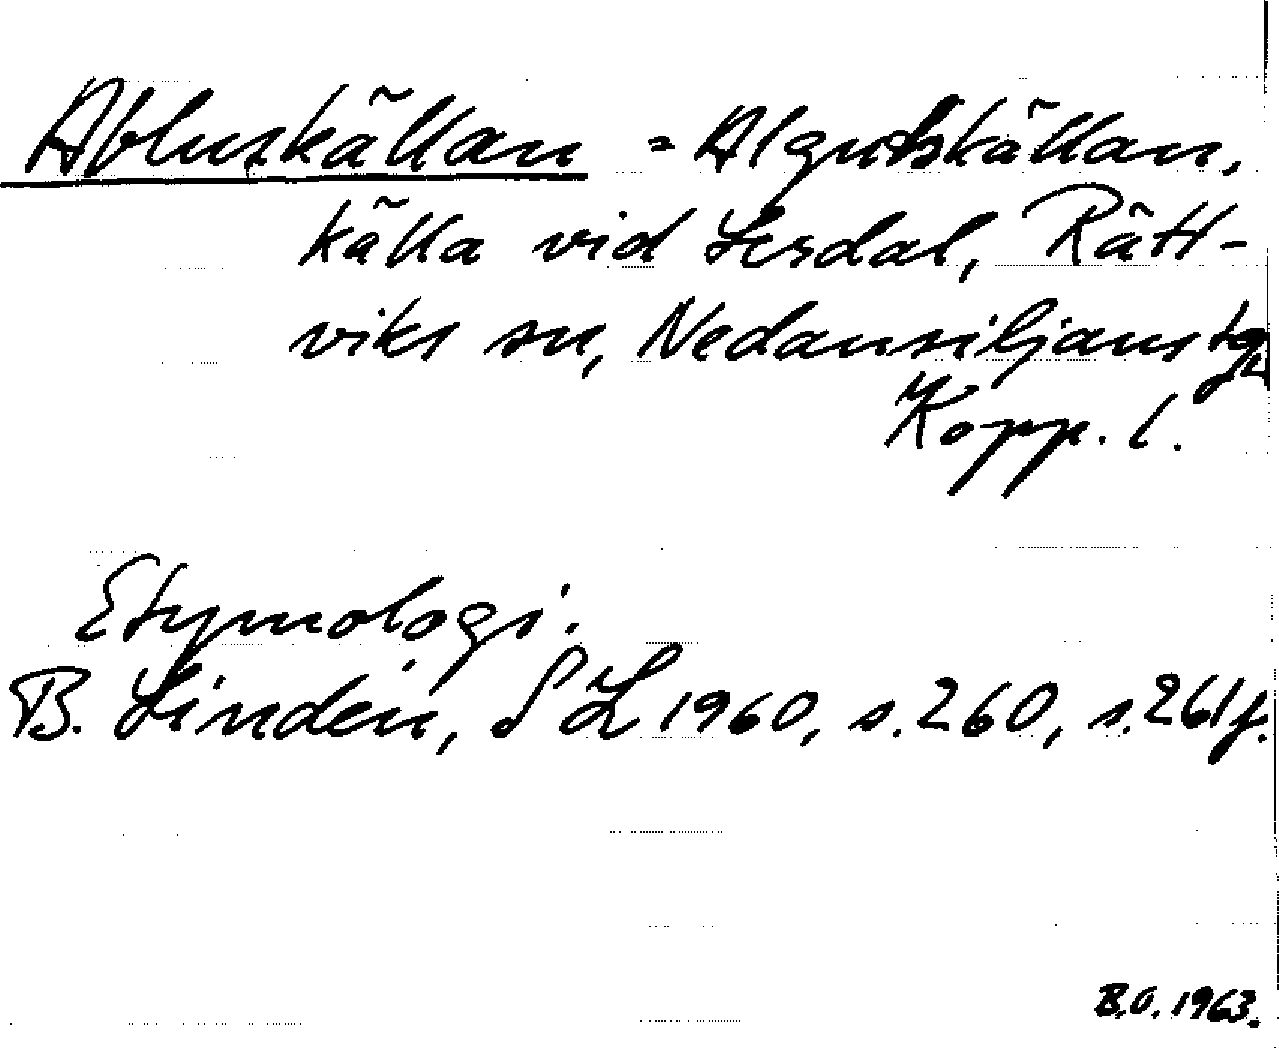 Abluskällan = Algutskällan,
källa vid Lerdal, Rätt-
viks sn, Nedansiljans tg
Kopp. l.
Etymologi:
B. Lindén, SL 1960, s. 260, s. 261 f.
B.O. 1963.